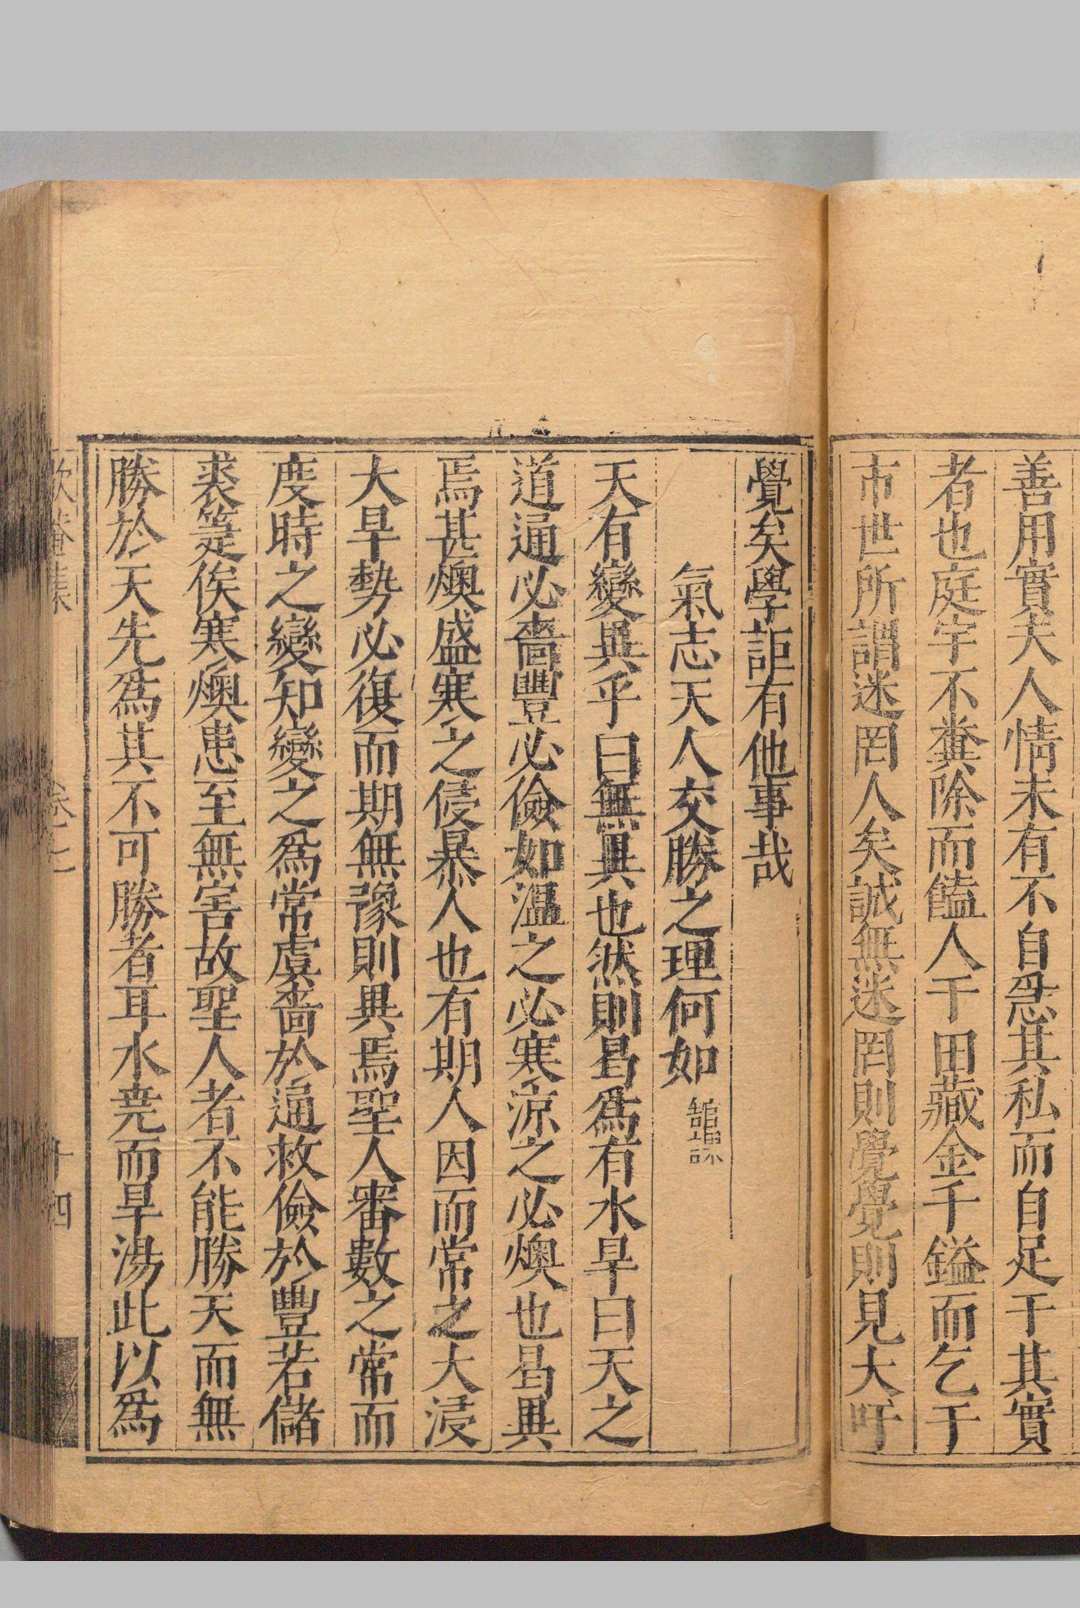 善用實夫人情未有不自爲其私而自足于其實
者也庭宇不糞除而饁人千田藏金千鎰而乞于
市世所謂迷罔人矣誠無迷罔則覺覺則見大吁
覺矣學詎有他事哉
氣志天人交勝之理何如館課
天有變異乎曰無異也然則曷爲有水旱曰天之
道通必嗇豐必儉如溫之必寒涼之必燠也曷異
焉甚燠盛寒之侵暴人也有期人因而常之大浸
大旱勢必復而期無豫則異焉聖人審數之常而
度時之變知變之爲常虞嗇於通救儉於豐若儲
裘箑俟寒燠患至無害故聖人者不能勝天而無
勝於天先爲其不可勝者耳水堯而旱湯此以爲
歇菴集
卷之
十四